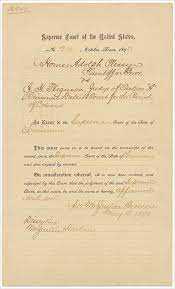 Supreme Court of the United States,
No. 210, October Term, 1895.
Homer Adolph Plessy
Plaintiff in Error,
vs.
J. H. Ferguson, Judge of Section "A"
Criminal District Court for the Parish
of Orleans
In Error to the Supreme
Court of the State of
Louisiana
This cause came on to be heard on the transcript of the
record from the Supreme Court of the State of
Louisiana
and was argued by counsel.
On consideration whereof, It is now here ordered and
adjudged by this Court that the judgment of the said Supreme
Court, in this cause, be, and the same is hereby, affirmed
with costs.
per Mr. Justice Brown,
May 18, 1896.
Dissenting:
Mr. Justice Harlan